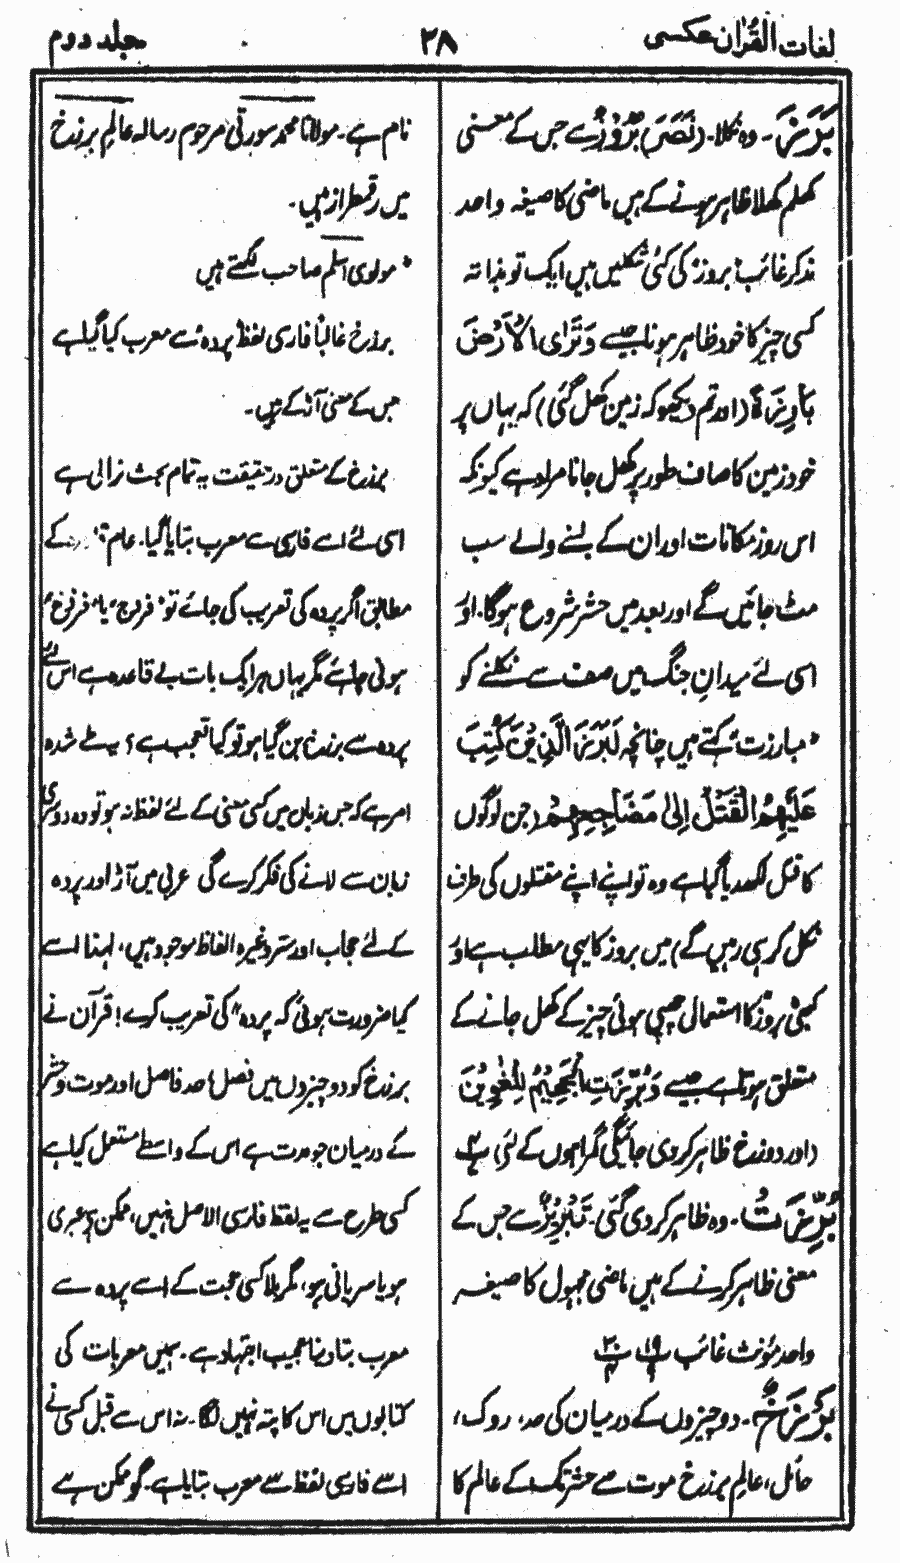 لغات القرآن عکسی
۲۸
جلد دوم
بَرَزَ۔ وہ نکلا۔ (نَصَرَ) بُرُوْزٌ سے جس کے معنی
کھلم کھلا ظاہر ہونے کے ہیں ماضی کا صیغہ واحد
مذکر غائب، بروز، کی کئی شکلیں ہیں ایک تو بذاتہ
کسی چیز کا خود ظاہر ہونا جیسے وَتَرَی الْاَرْضَ
بَارِزَۃً (اور تم دیکھو کہ زمین کھل گئی) کہ یہاں پر
خود زمین کا صاف طور پر کھل جانا مراد ہے کیونکہ
اس روز مکانات اور ان کے بسنے والے سب
مٹ جائیں گے اور بعد میں حشر شروع ہوگا۔ اور
اسی لئے میدانِ جنگ میں صف سے نکلنے کو
مبارزت، کہتے ہیں چنانچہ لَبَرَزَ الَّذِیْنَ کُتِبَ
عَلَیْھِمُ الْقَتْلُ اِلٰی مَضَاجِعِھِمْ (جن لوگوں
کا قتل لکھ دیا گیا ہے وہ تو اپنے اپنے مقتلوں کی طرف
نکل کر ہی رہیں گے) میں بروز کا یہی مطلب ہے اور
کبھی بروز کا استعمالی چھپی ہوئی چیز کے کھل جانے کے
متعلق ہوتا ہے جیسے وَبُرِّزَتِ الْجَحِیْمُ لِلْغٰوِیْنَ
(اور دوزخ ظاہر کردی جائیگی گمراہوں کے لئے)
بُرِّزَتْ۔ وہ ظاہر کر دی گئی۔ تَبْرِیْزٌ سے جس کے
معنی ظاہر کرنے کے ہیں ماضی مجہول کا صیغہ
واحد مؤنث غائب
بَرْزَخٌ۔ دو چیزوں کے درمیان کی حد، روک،
حائل، عالمِ برزخ موت سے حشر تک کے عالم کا
نام ہے۔ مولانا محمد سورتی مرحوم رسالہ عالمِ برزخ
میں رقمطراز ہیں۔
مولوی اسلم صاحب لکھتے ہیں
برزخ غالباً فارسی لفظ پردہ سے معرب کیا گیا ہے
جس کے معنی آڑ کے ہیں۔
برزخ کے متعلق درحقیقت یہ تمام بحث نرالی ہے
اسی لئے اسے فارسی سے معرب بتایا گیا۔ عام کے
مطابق اگر پردہ کی تعریب کی جائے تو، فرزج، یا، فرزخ،
ہونی چاہئے مگر یہاں ہر ایک بات بے قاعدہ ہے اس لئے
پردہ سے برزخ بن گیا ہو تو کیا تعجب ہے، یہ طے شدہ
امر ہے کہ جس زبان میں کسی معنی کے لئے لفظ نہ ہو تو وہ دوسری
زبان سے لانے کی فکر کرے گی عربی میں آڑ اور پردہ
کے لئے حجاب اور ستر وغیرہ الفاظ موجود ہیں، لہٰذا اسے
کیا ضرورت ہوئی کہ "پردہ" کی تعریب کرے! قرآن نے
برزخ کو دو چیزوں میں فصل، حد فاصل اور موت و حشر
کے درمیان جو مدت ہے اس کے واسطے مستعمل کیا ہے
کسی طرح سے یہ لفظ فارسی الاصل نہیں، ممکن ہے عبری
ہو یا سریانی ہو، مگر بلا کسی حجت کے اسے پردہ سے
معرب بتا دینا عجیب اجتہاد ہے۔ ہمیں معربات کی
کتابوں میں اس کا پتہ نہیں لگا۔ نہ اس سے قبل کسی نے
اسے فارسی لفظ سے معرب بتایا ہے۔ گو ممکن ہے